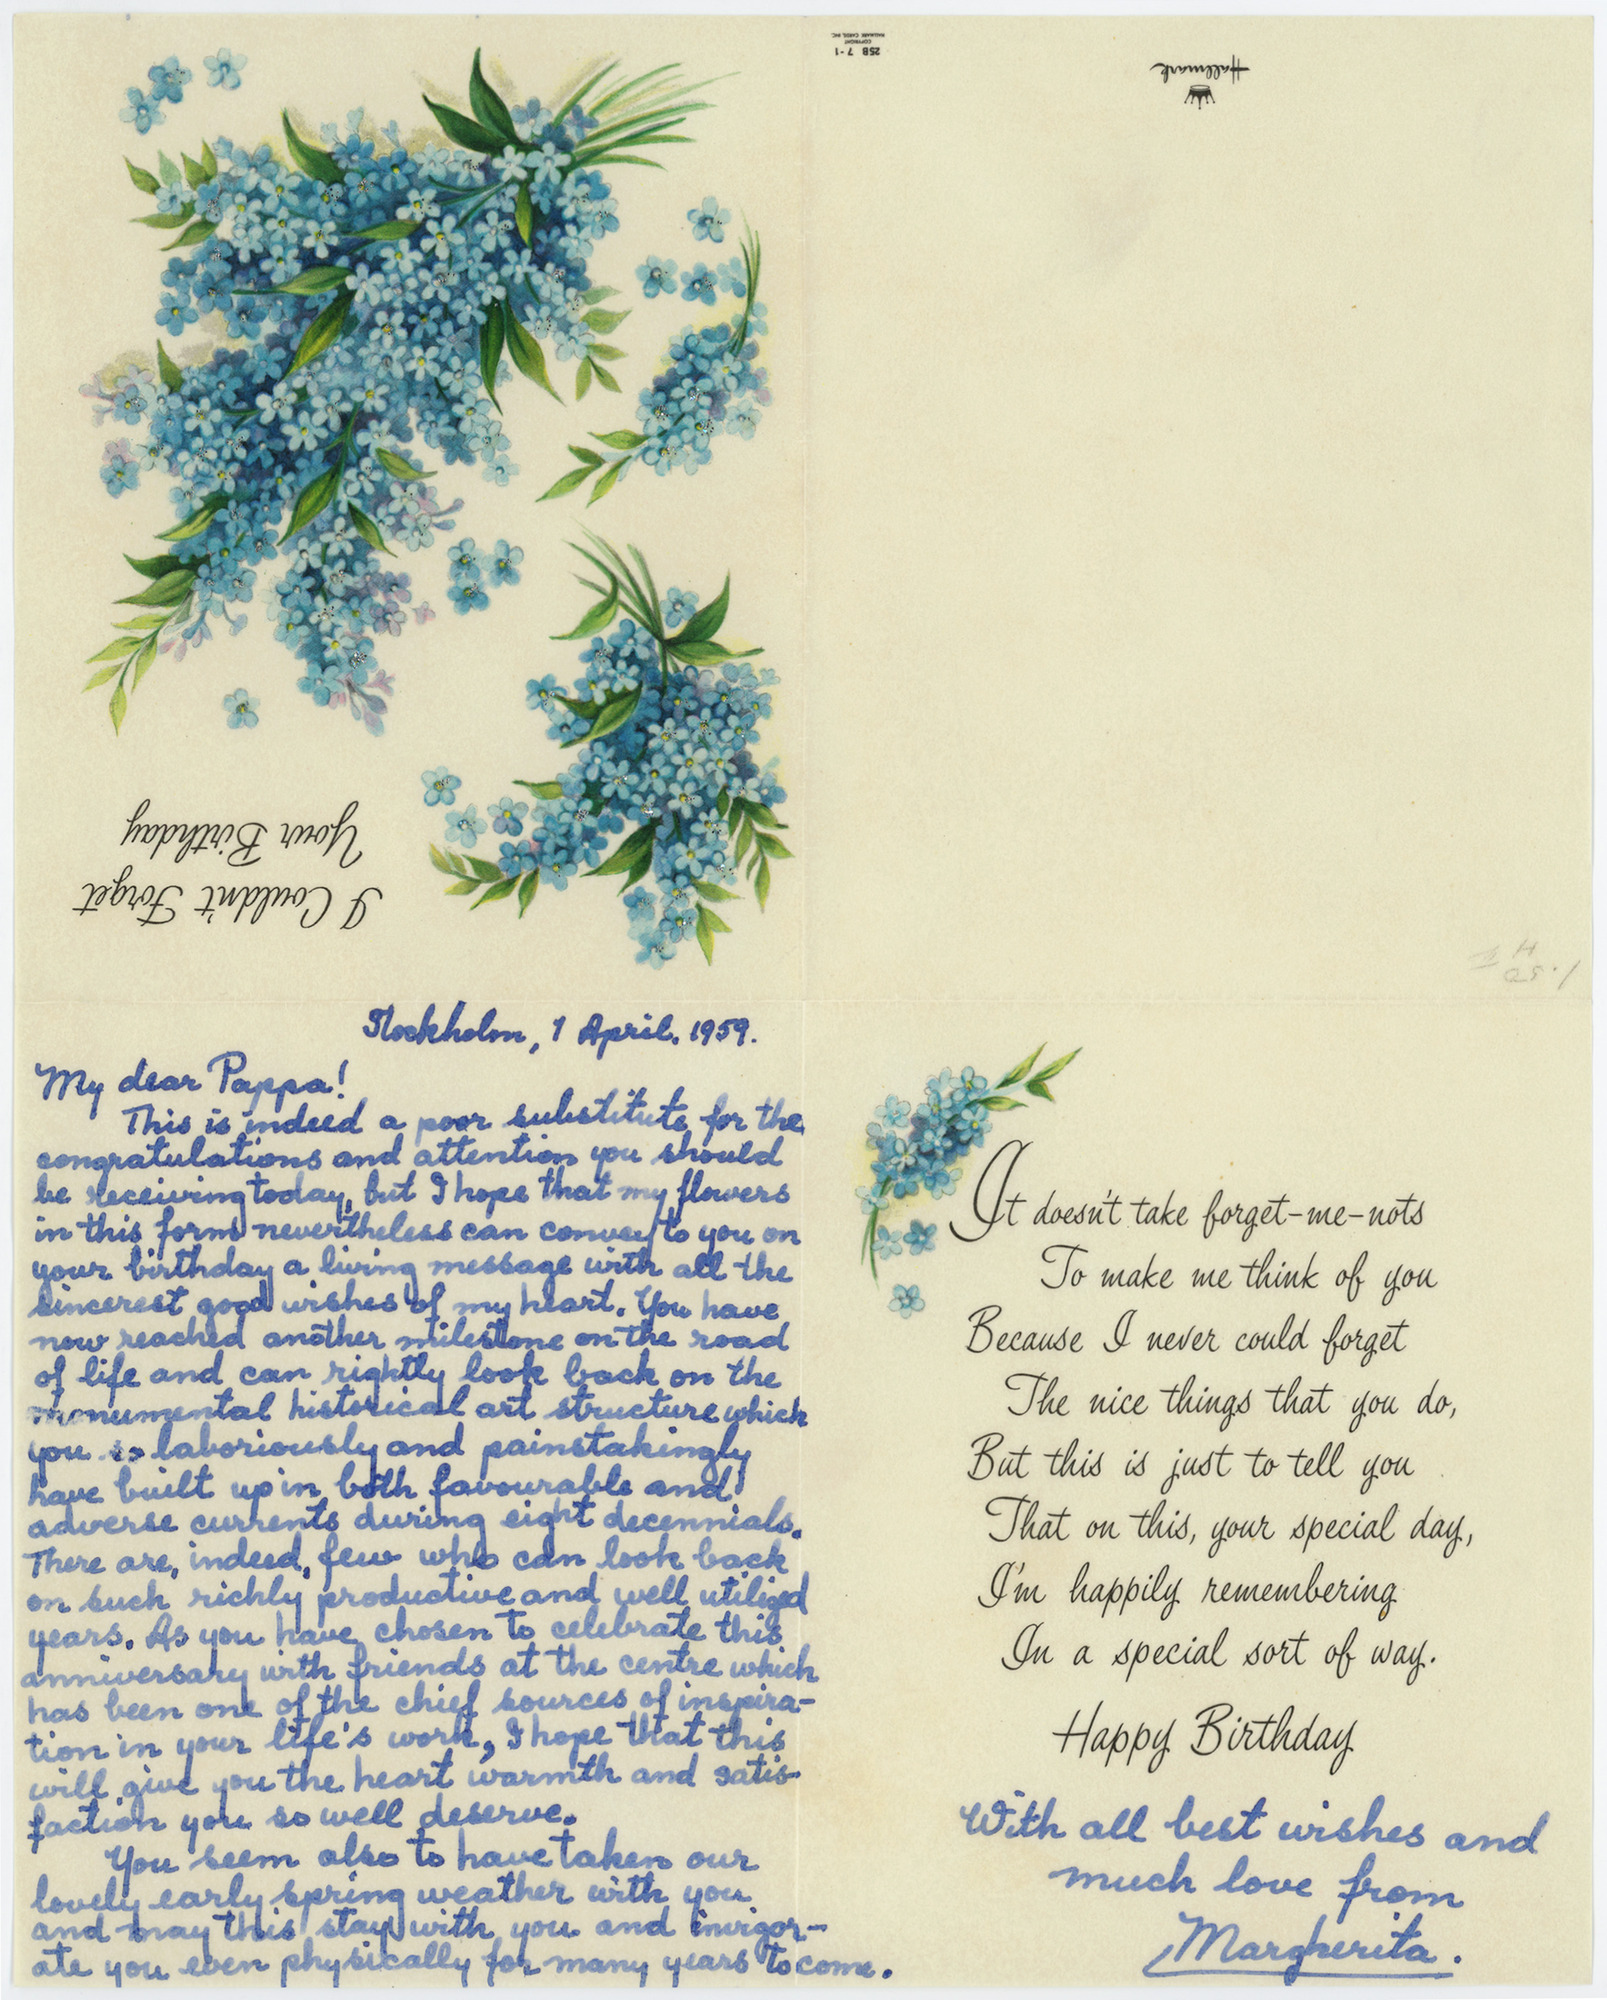 I Couldn't Forget
Your Birthday
Hallmark
25B 7-1
COPYRIGHT
HALLMARK CARDS, INC.
Stockholm, 1 April. 1959.
My dear Pappa!
This is indeed a poor substitute for the
congratulations and attention you should
be receiving today, but I hope that my flowers
in this form nevertheless can convey to you on
your birthday a living message with all the
sincerest good wishes of my heart. You have
now reached another milestone on the road
of life and can rightly look back on the
monumental historical art structure which
you so laboriously and painstakingly
have built up in both favourable and
adverse currents during eight decennials.
There are, indeed, few who can look back
on such richly productive and well utilized
years. As you have chosen to celebrate this
anniversary with friends at the centre which
has been one of the chief sources of inspira-
tion in your life's work, I hope that this
will give you the heart warmth and satis-
faction you so well deserve.
You seem also to have taken our
lovely early spring weather with you
and may this stay with you and invigor-
ate you even physically for many years to come.
It doesn't take forget-me-nots
To make me think of you
Because I never could forget
The nice things that you do,
But this is just to tell you
That on this, your special day,
I'm happily remembering
In a special sort of way.
Happy Birthday
With all best wishes and
much love from
Margherita.